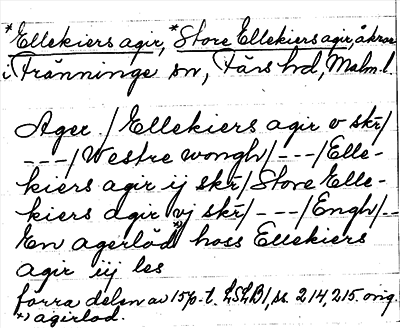 *Ellekiers agir, *Store Ellekiers agir, åkrar
i Tränninge sn, Färs hd, Malm. l.
Ager / Ellekiers agir v skr/
---/Westre wongh/---/Elle-
kiers agir ij skr/ Store Elle-
kiers agir vj skr/---/Engh/--
En agerlöd*) hoss Ellekiers
agir iij les
förra delen av 15/0-t. LSLB1, ss. 214, 215. orig.
*) agerlod.